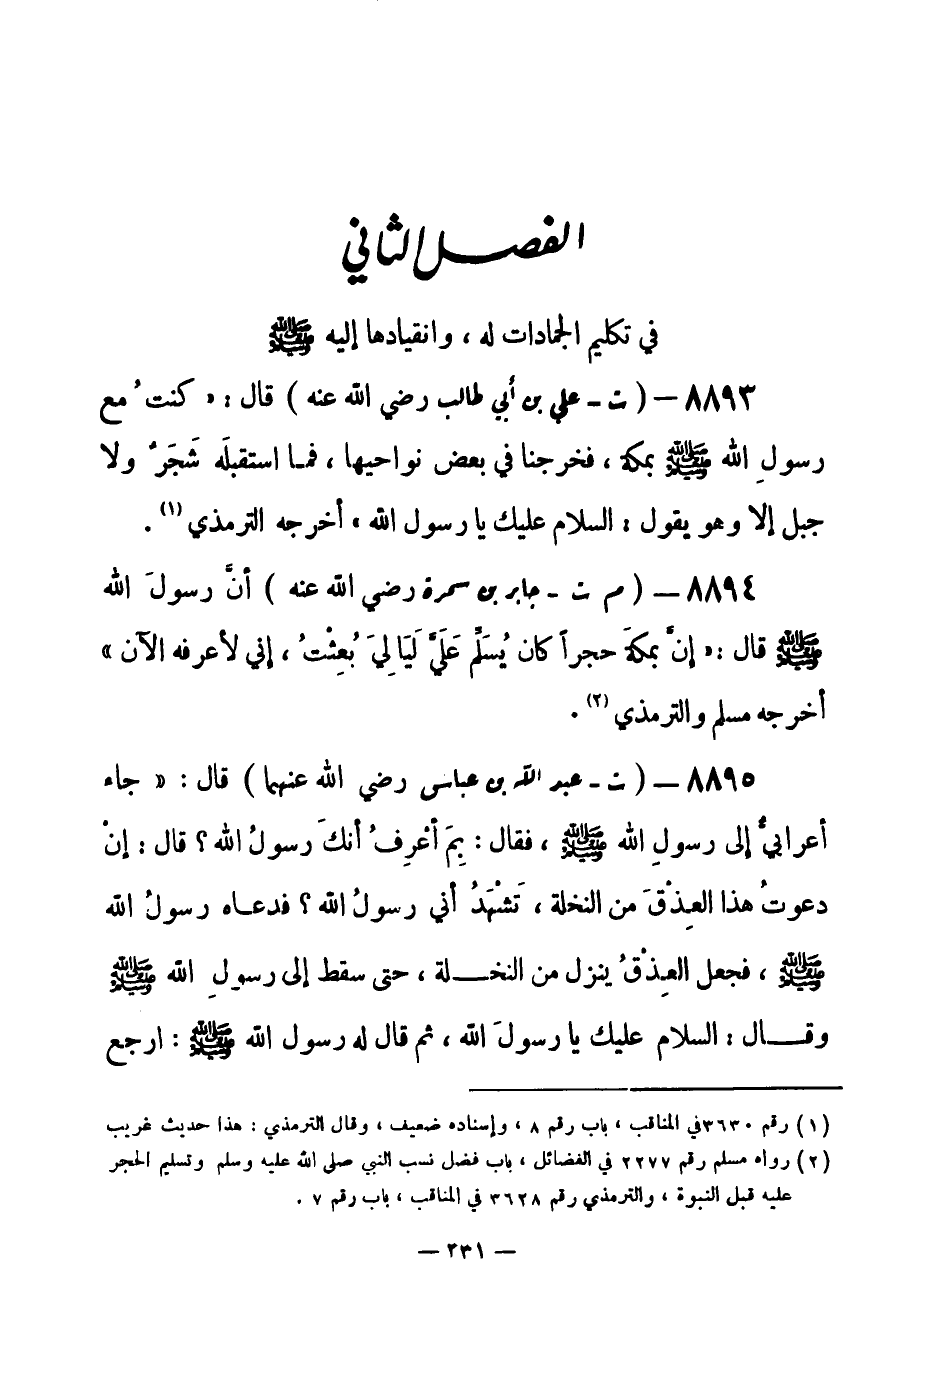 الفصل الثاني
في تكليم الجمادات له ، وانقيادها إليه ﷺ
٨٨٩٣ – ( ت - علي بن أبي طالب رضي الله عنه ) قال : « كنتُ مع
رسولِ الله ﷺ بمكة ، فخرجنا في بعض نواحيها ، فمـا استقبلَه شَجَرٌ ولا
جبل إلا وهو يقول : السلام عليك يا رسول الله » أخرجه الترمذي (١) .
٨٨٩٤ – ( م ت - جابر بن سمرة رضي الله عنه ) أنَّ رسولَ الله
ﷺ قال : « إنَّ بمكةَ حجراً كان يُسَلِّم عَلَيَّ لَيَالِيَ بُعِثْتُ ، إني لأعرفه الآن »
أخرجه مسلم والترمذي (٢) .
٨٨٩٥ – ( ت - عبد الله بن عباس رضي الله عنهما ) قال : « جاء
أعرابيٌّ إلى رسولِ الله ﷺ ، فقال : بِمَ أعْرِفُ أنكَ رسولُ الله ؟ قال : إنْ
دعوتُ هذا العِذْقَ من النخلة ، تَشْهَدُ أني رسولُ الله ؟ فدعـاه رسولُ الله
ﷺ ، فجعل العِذْقُ ينزل من النخـــلة ، حتى سقط إلى رسولِ الله ﷺ
وقـــال : السلام عليك يا رسولَ الله ، ثم قال له رسول الله ﷺ : ارجع
(١) رقم ٣٦٣٠ في المناقب ، باب رقم ٨ ، وإسناده ضعيف ، وقال الترمذي : هذا حديث غريب
(٢) رواه مسلم رقم ٢٢٧٧ في الفضائل ، باب فضل نسب النبي صلى الله عليه وسلم وتسليم الحجر
عليه قبل النبوة ، والترمذي رقم ٣٦٢٨ في المناقب ، باب رقم ٧ .
– ٣٣١ –